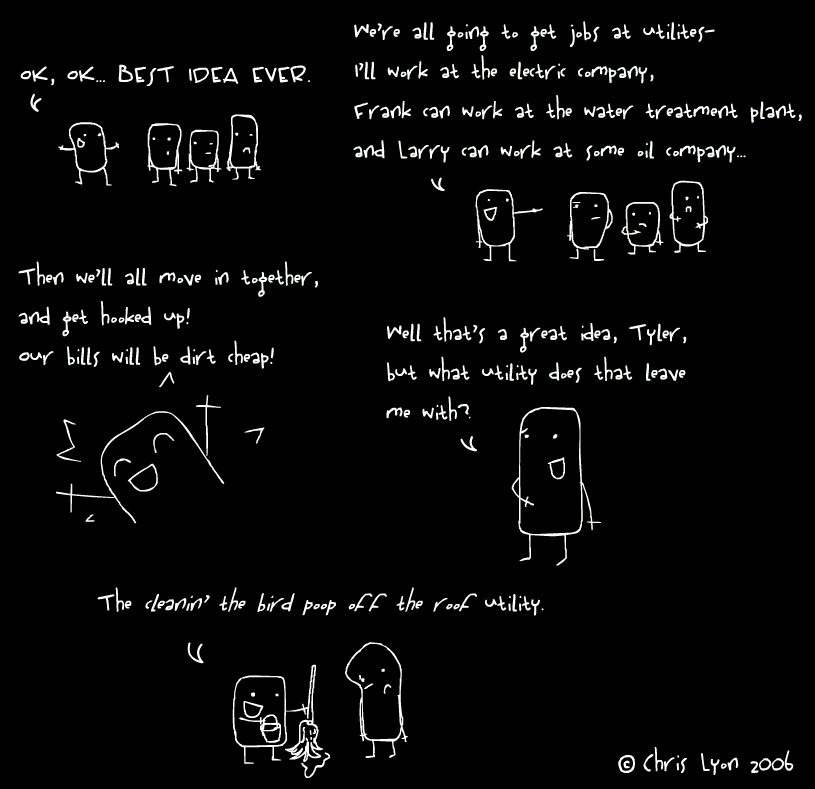 OK, OK... BEST IDEA EVER.
We're all going to get jobs at utilites-
I'll work at the electric company,
Frank can work at the water treatment plant,
and Larry can work at some oil company...
Then we'll all move in together,
and get hooked up!
our bills will be dirt cheap!
Well that's a great idea, Tyler,
but what utility does that leave
me with?
The cleanin' the bird poop off the roof utility.
© Chris Lyon 2006